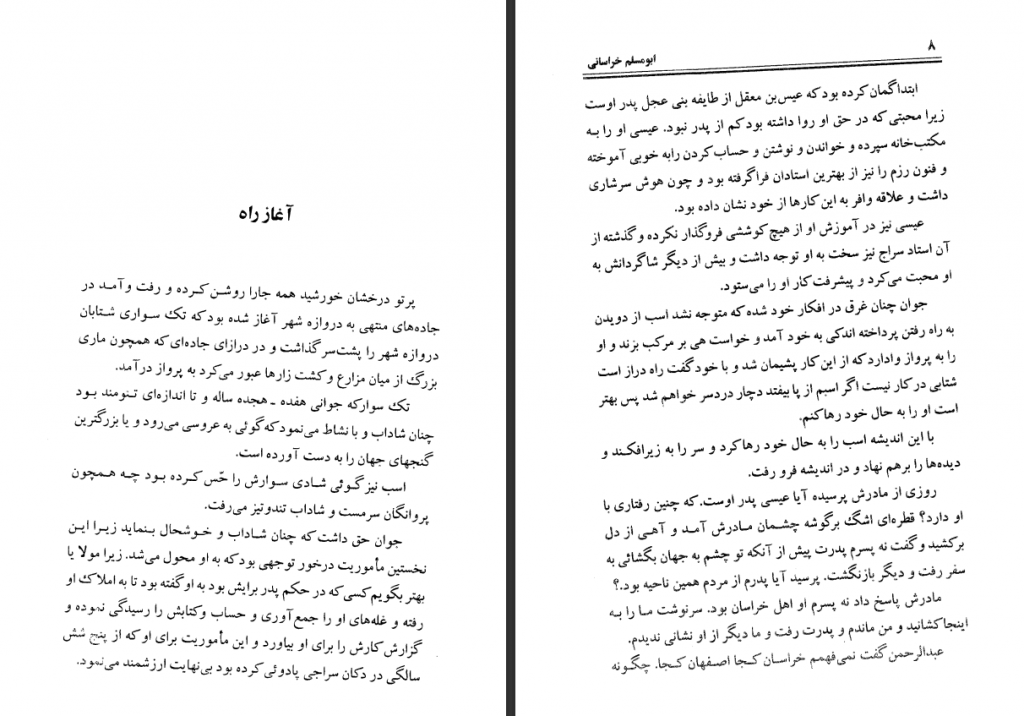 آغاز راه
پرتو درخشان خورشید همه جارا روشن کرده و رفت وآمد در
جاده‌های منتهی به دروازه شهر آغاز شده بود که تک سواری شتابان
دروازه شهر را پشت‌سر گذاشت و در درازای جاده‌ای که همچون ماری
بزرگ از میان مزارع و کشت زارها عبور می‌کرد به پرواز درآمد.
تک سوار که جوانی هفده ـ هجده ساله و تا اندازه‌ای تنومند بود
چنان شاداب و با نشاط می‌نمود که گوئی به عروسی می‌رود و یا بزرگترین
گنجهای جهان را به دست آورده است.
اسب نیز گوئی شادی سوارش را حّس کرده بود چه همچون
پروانگان سرمست و شاداب تندوتیز می‌رفت.
جوان حق داشت که چنان شاداب و خوشحال بنماید زیرا این
نخستین مأموریت درخور توجهی بود که به او محول می‌شد. زیرا مولا یا
بهتر بگویم کسی که در حکم پدر برایش بود به او گفته بود تا به املاک او
رفته و غله‌های او را جمع‌آوری و حساب وکتابش را رسیدگی نموده و
گزارش کارش را برای او بیاورد و این مأموریت برای او که از پنج شش
سالگی در دکان سراجی پادوئی کرده بود بی‌نهایت ارزشمند می‌نمود.
۸
ابومسلم خراسانی
ابتدا گمان کرده بود که عیس‌بن معقل از طایفه بنی عجل پدر اوست
زیرا محبتی که در حق او روا داشته بود کم از پدر نبود. عیسی او را به
مکتب‌خانه سپرده و خواندن و نوشتن و حساب کردن رابه خوبی آموخته
و فنون رزم را نیز از بهترین استادان فراگرفته بود و چون هوش سرشاری
داشت و علاقه وافر به این کارها از خود نشان داده بود.
عیسی نیز در آموزش او از هیچ کوششی فروگذار نکرده و گذشته از
آن استاد سراج نیز سخت به او توجه داشت و بیش از دیگر شاگردانش به
او محبت می‌کرد و پیشرفت کار او را می‌ستود.
جوان چنان غرق در افکار خود شده که متوجه نشد اسب از دویدن
به راه رفتن پرداخته اندکی به خود آمد و خواست هی بر مرکب بزند و او
را به پرواز وادارد که از این کار پشیمان شد و با خود گفت راه دراز است
شتابی در کار نیست اگر اسبم از پا بیفتد دچار دردسر خواهم شد پس بهتر
است او را به حال خود رها کنم.
با این اندیشه اسب را به حال خود رها کرد و سر را به زیرافکند و
دیده‌ها را برهم نهاد و در اندیشه فرو رفت.
روزی از مادرش پرسیده آیا عیسی پدر اوست. که چنین رفتاری با
او دارد؟ قطره‌ای اشگ برگوشه چشمان مادرش آمد و آهی از دل
برکشید و گفت نه پسرم پدرت پیش از آنکه تو چشم به جهان بگشائی به
سفر رفت و دیگر بازنگشت. پرسید آیا پدرم از مردم همین ناحیه بود.؟
مادرش پاسخ داد نه پسرم او اهل خراسان بود. سرنوشت ما را به
اینجا کشانید و من ماندم و پدرت رفت و ما دیگر از او نشانی ندیدم.
عبدالرحمن گفت نمی‌فهمم خراسان کجا اصفهان کجا. چگونه